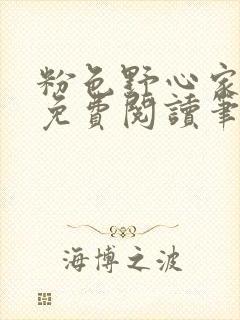 粉色野心家
免費閱讀筆
海博之波